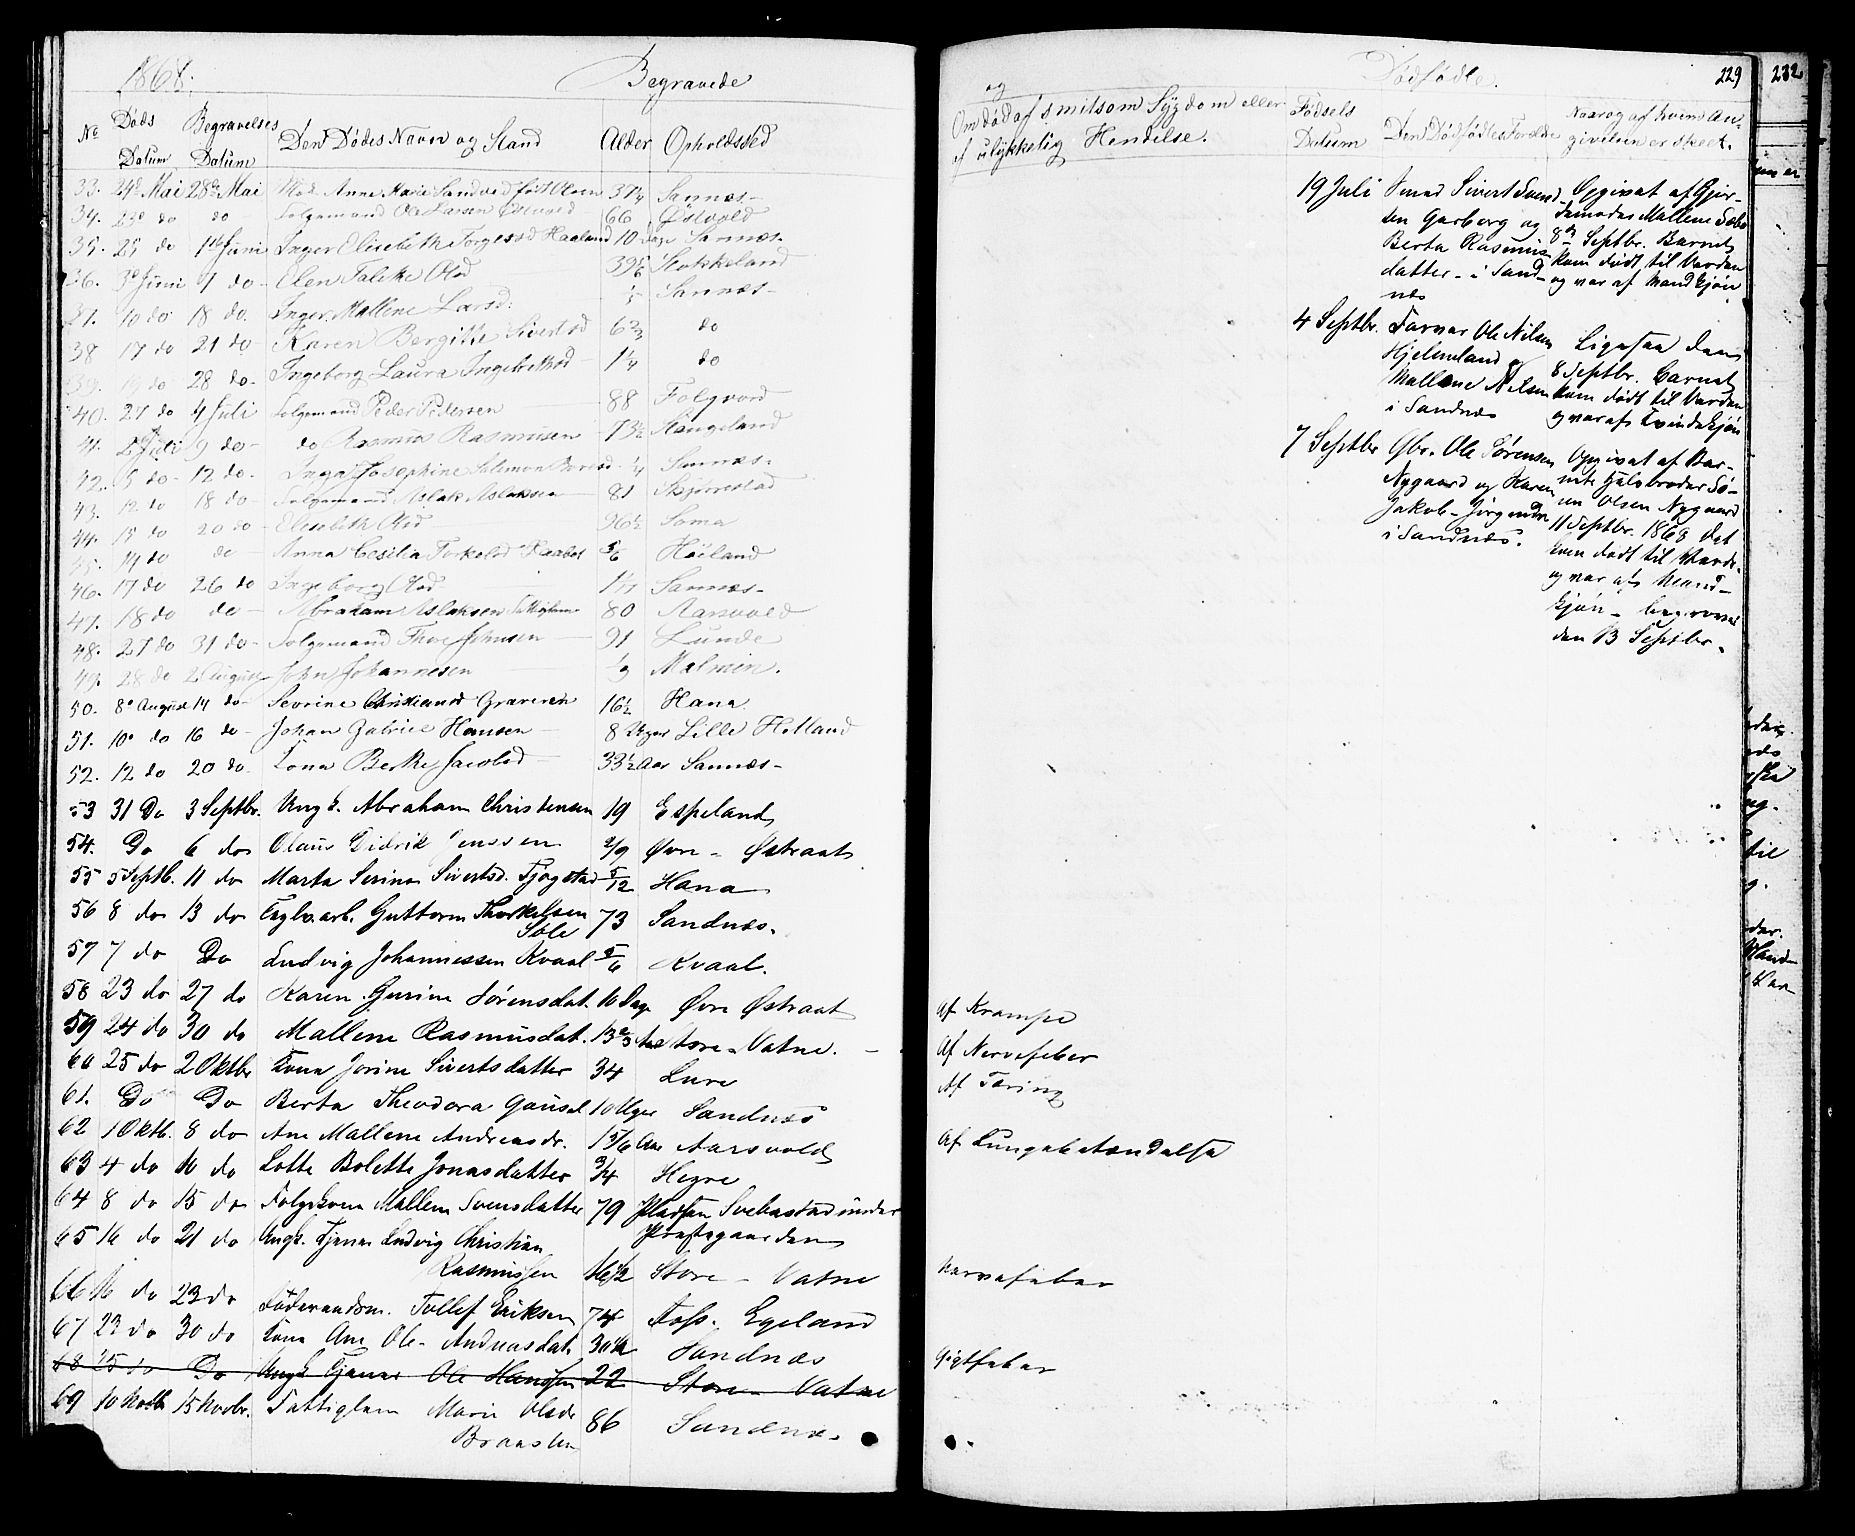 1868.
Begravede
No Døds Datum Begravelses Datum Den Dødes Navn og Stand Alder Opholdssted
33. 24de Mai 28de Mai Mad. Anne Marie Sandved født Olsen 37 1/4 Sannæs-
34. 23de do do Folgemand Ole Larsen 66 Østvold
35. 25 do 1ste Juni Inger Elisebeth Torgersd Haaland 10 dage Sannæs-
36. 3de Juni 7 do- Elen Talike Olsd 39 5/6 Stokkeland
10 do 18 do Inger Mallene Larsd. Sannæs-
38 17 do 21 do- Karen Bergitte Sivertsd 6 2/3 do
39. 19 do 28 do- Ingeborg Laura Ingebretsd 1 1/4 do
40. 27 do 4 Juli Folgemand Peder Pedersen 88 Folgvord
41. 2de Juli 9 do- do Rasmus Rasmusen 73 1/2 Stangeland
42. 5 do- 12 do- Inga Josephine Salomonsd 1/4 Sannæs-
43. 12 do 18 do- Folgemand Aslak Aslaksen 81 Skjørrestad
44. 15 do 20 do- Elisebeth Olsd 96 1/2 Soma
45. 14 do do- Anna Cesilia Torkelsd 5/6 Høiland
46. 17 do 26 do Ingeborg Olsd Sannæs-
47. 18 do do- Abraham Aslaksen Fattiglem 80 Aarsvold
48. 27 do 31 do- Folgemand Thore Johnsen 91 Lunde
49. 28 do 2 August John Johannesen 1/9 Malmin.
50. 8de August 14 do- Sevrine Christiansd Graveren 16 1/2 Hana
51. 10de do 16 do- Johan Gabriel Hansen 8 Uger Lille Hetland
52. 12 do 20 do Kona Berthe Jacobsd 33 1/2 Aar Sannæs-
53 31 Do 3 Septbr. Ungk. Abraham Christensen 19 Espeland
54. Do 6 do Olaus Didrik Jenssen 2/9 Øvre- Østraat
55 5 Septb. 11 do Marta Serina Sivertsd. Fjogstad 5/12 Hana
56 8 do 13 do Teglv.arb. Guttorm Thorkelsen Sole 73 Sandnæs.
57 7 do Do Ludvig Johannessen Kvaal 5/6 Kvaal.
58 23 do 27 do Karen Gurine Sørensdat. 10 Dage Øvre Østraat
59 24 do 30 do Mallene Rasmusdat. 13 2/3 Aar Store-Vatne.
60 25 do 2 Oktbr Kona Jorine Sivertsdatter 34 Lure
61. Do Do Berta Theodora Gausel 10 Uger Sandnæs
62 1 Oktb. 8 do Ane Mallene Andreasdr. 1 5/6 Aar Aarsvold
63 4 do 10 do Lotte Bolette Jonasdatter 3/4 Hegre
64 8 do 15 do Folgekone Mallene Svensdatter 79 Pladsen Svebastad under
Præstegaarden
65 16 do 21 do Ungk. Tjener Ludvig Christian
Rasmussen 16 1/2 Store-Vatne
66 16 do 23 do Føderaadsm. Tollef Eriksen 74 Foss-Egeland
67 23 do 30 do Kona Ane Ole-Andreasdat. 30 1/2 Sandnæs
68 25 do Do Ungk. Tjener Ole Hansen 22 Store-Vatne
69 10 Novb 15 Novbr. Fattiglem Marie Olsdr
Braasten 86 Sandnæs.
og Dødfødte. 229 232
Om død af smitsom Sygdom eller
af ulykkelig Hendelse.
Fødsels Datum
Den Dødfødtes Forældre
Naar og af hvem An-
givelsen er skeet.
19 Juli Smed Sivert Svend-
sen Garborg og
Berta Rasmus-
datter- i Sand-
næs
Opgivet af Gjor-
demoder Mallene Sæbø
8de Septbr. Barnet
kom dødt til Verden
og var af Mandkjøn
4 Septbr. Farver Ole Nilsen
Hjelmeland og
Mallene Nilsen
i Sandnæs
Ligesaa den
8 Septbr. Barnet
kom dødt til Verden
og var af Kvindekjøn
7 Septbr Gbr. Ole Sørensen
Nygaard og Karen
Jakob-Jørgendr
i Sandnæs.
Opgivet af Bar-
nets Halvbroder Sø-
ren Olsen Nygaard
11 Septbr. 1868 Det
kom dødt til Verden
og var af Mand-
kjøn- begravet
den 13 Septbr.
Af Krampe
Af Nervefeber
Af Tæring
Af Lungebetændelse
Nervefeber
Gigtfeber